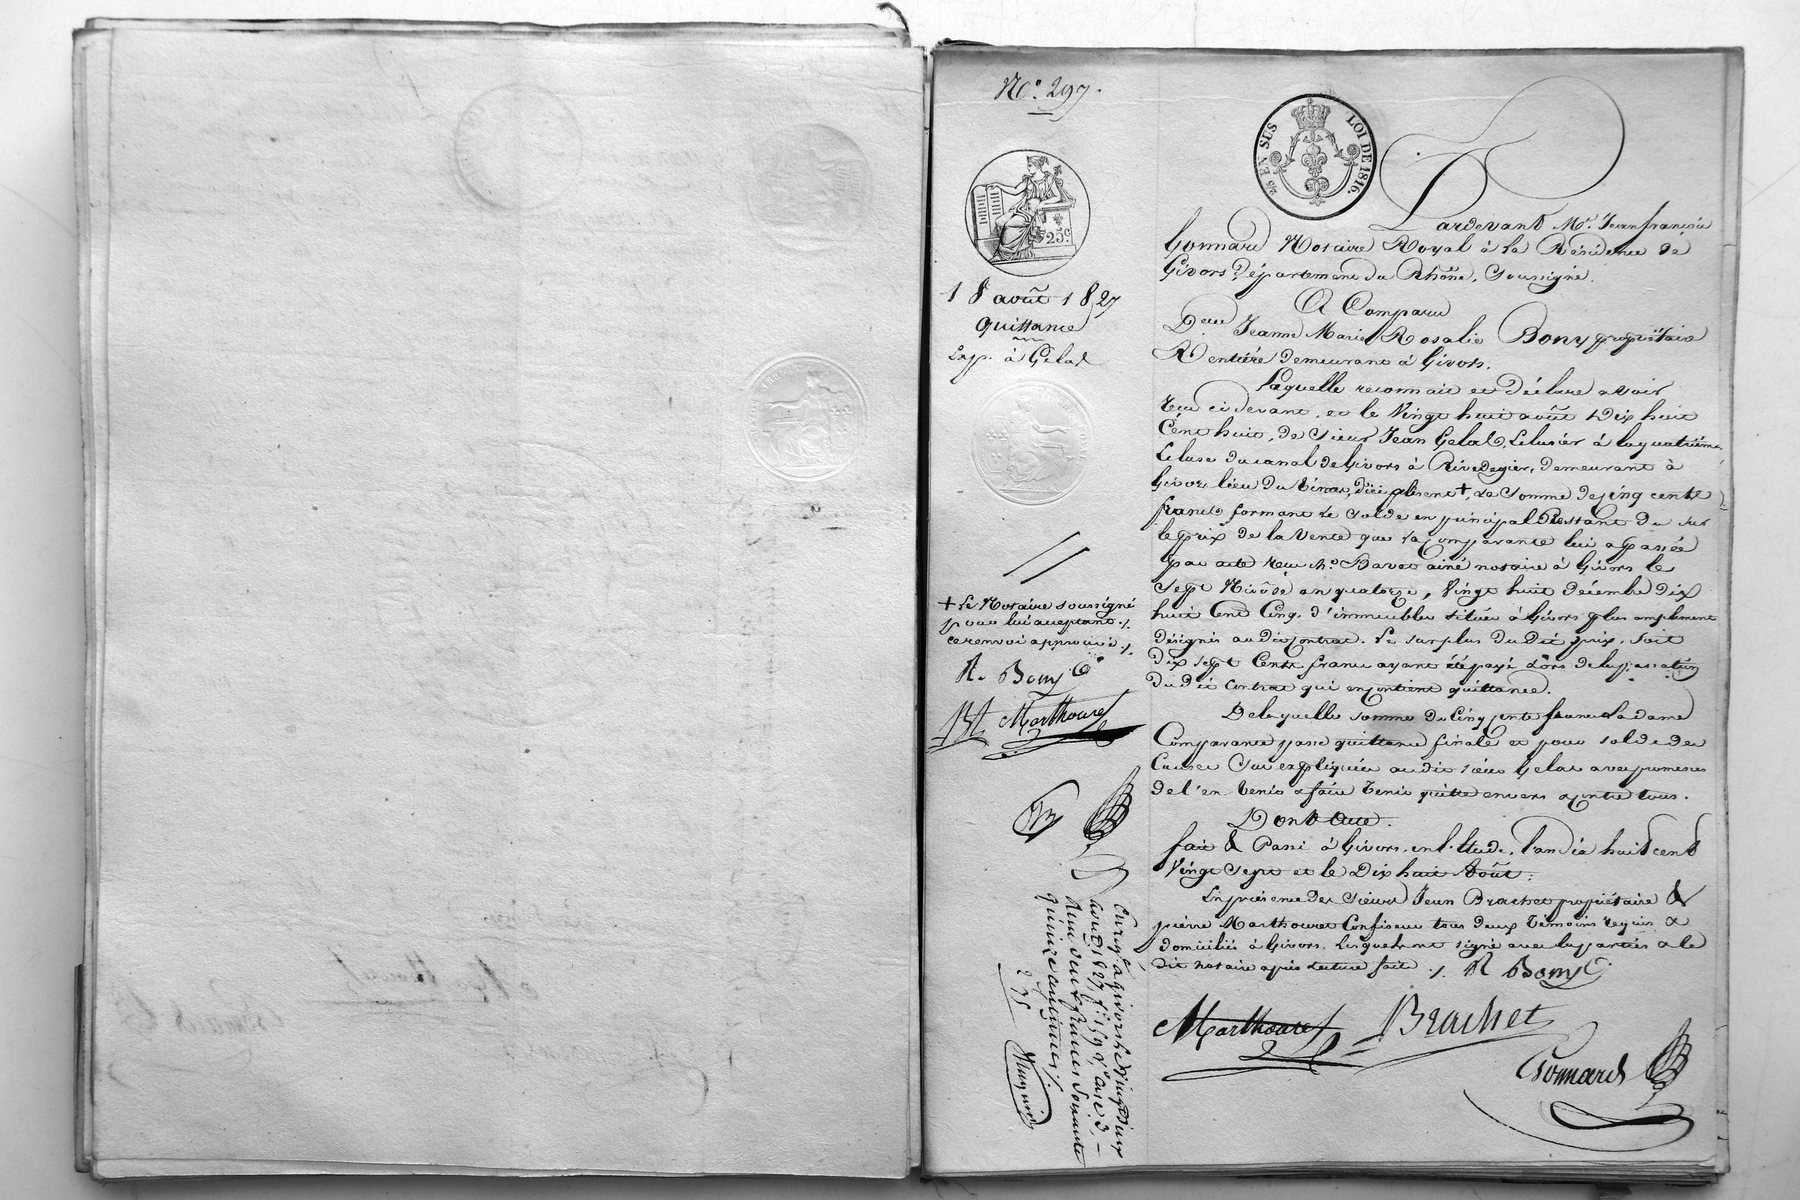 N.º 297.
EN SUS
LOI DE 1816.
25c.
18 août 1827
Quittance
à Gelas
Pardevant Me. Jean françois
Gonnard Notaire Royal à la Résidence de
Givors Département du Rhône, Soussigné.
A Comparu
Jeanne Marie Rosalie Bony propriétaire
Rentière demeurant à Givors.
Laquelle reconnait et Déclare avoir
reçu ci devant, et le Vingt huit août Dix huit
Cent huit, de sieur Jean Gelas, Eclusier à la quatrième
Ecluse du canal de Givors à Rivedegier, demeurant à
Givors lieu du présent +, La Somme de Cinq cents
francs formant le Solde en principal Restant du sur
le prix de la Vente que la Comparante lui a passée
par acte reçu Me. Bavet ainé notaire à Givors le
Sept Nivôse an quatorze, Vingt huit décembre dix
huit Cent Cinq, d'immeubles situés à Givors plus amplement
désignés audit Contrat. Le surplus du dit prix, soit
dix sept Cents francs ayant été payé Lors de la passation
du dit Contrat qui en contient quittance.
De laquelle somme de Cinq cents francs la dame
Comparante passe quittance finale et pour solde des
Causes Sus expliquées au dit sieur Gelas avec promesse
de l'en tenir et faire tenir quitte envers et contre tous.
Dont Acte.
fait & Passé à Givors, en l'Etude, l'an dix huit cent
Vingt Sept et le Dix huit Août.
En présence des Sieurs Jean Brachet propriétaire &
pierre Marthouret Confiseur tous deux témoins requis &
domiciliés à Givors. Lesquels ont signé avec les parties & le
dit notaire après Lecture faite ./. R Bony
Marthouret Brachet
Gonnard
+ Le Notaire soussigné
pour lui acceptant ./.
ce renvoi approuvé ./.
R. Bony G
Bt Marthouret
Enreg.é à givors le Vingt deux
août 1827, f.º 159 r.º case 3. —
Reçu deux francs Soixante
quinze centimes ./.
2 75